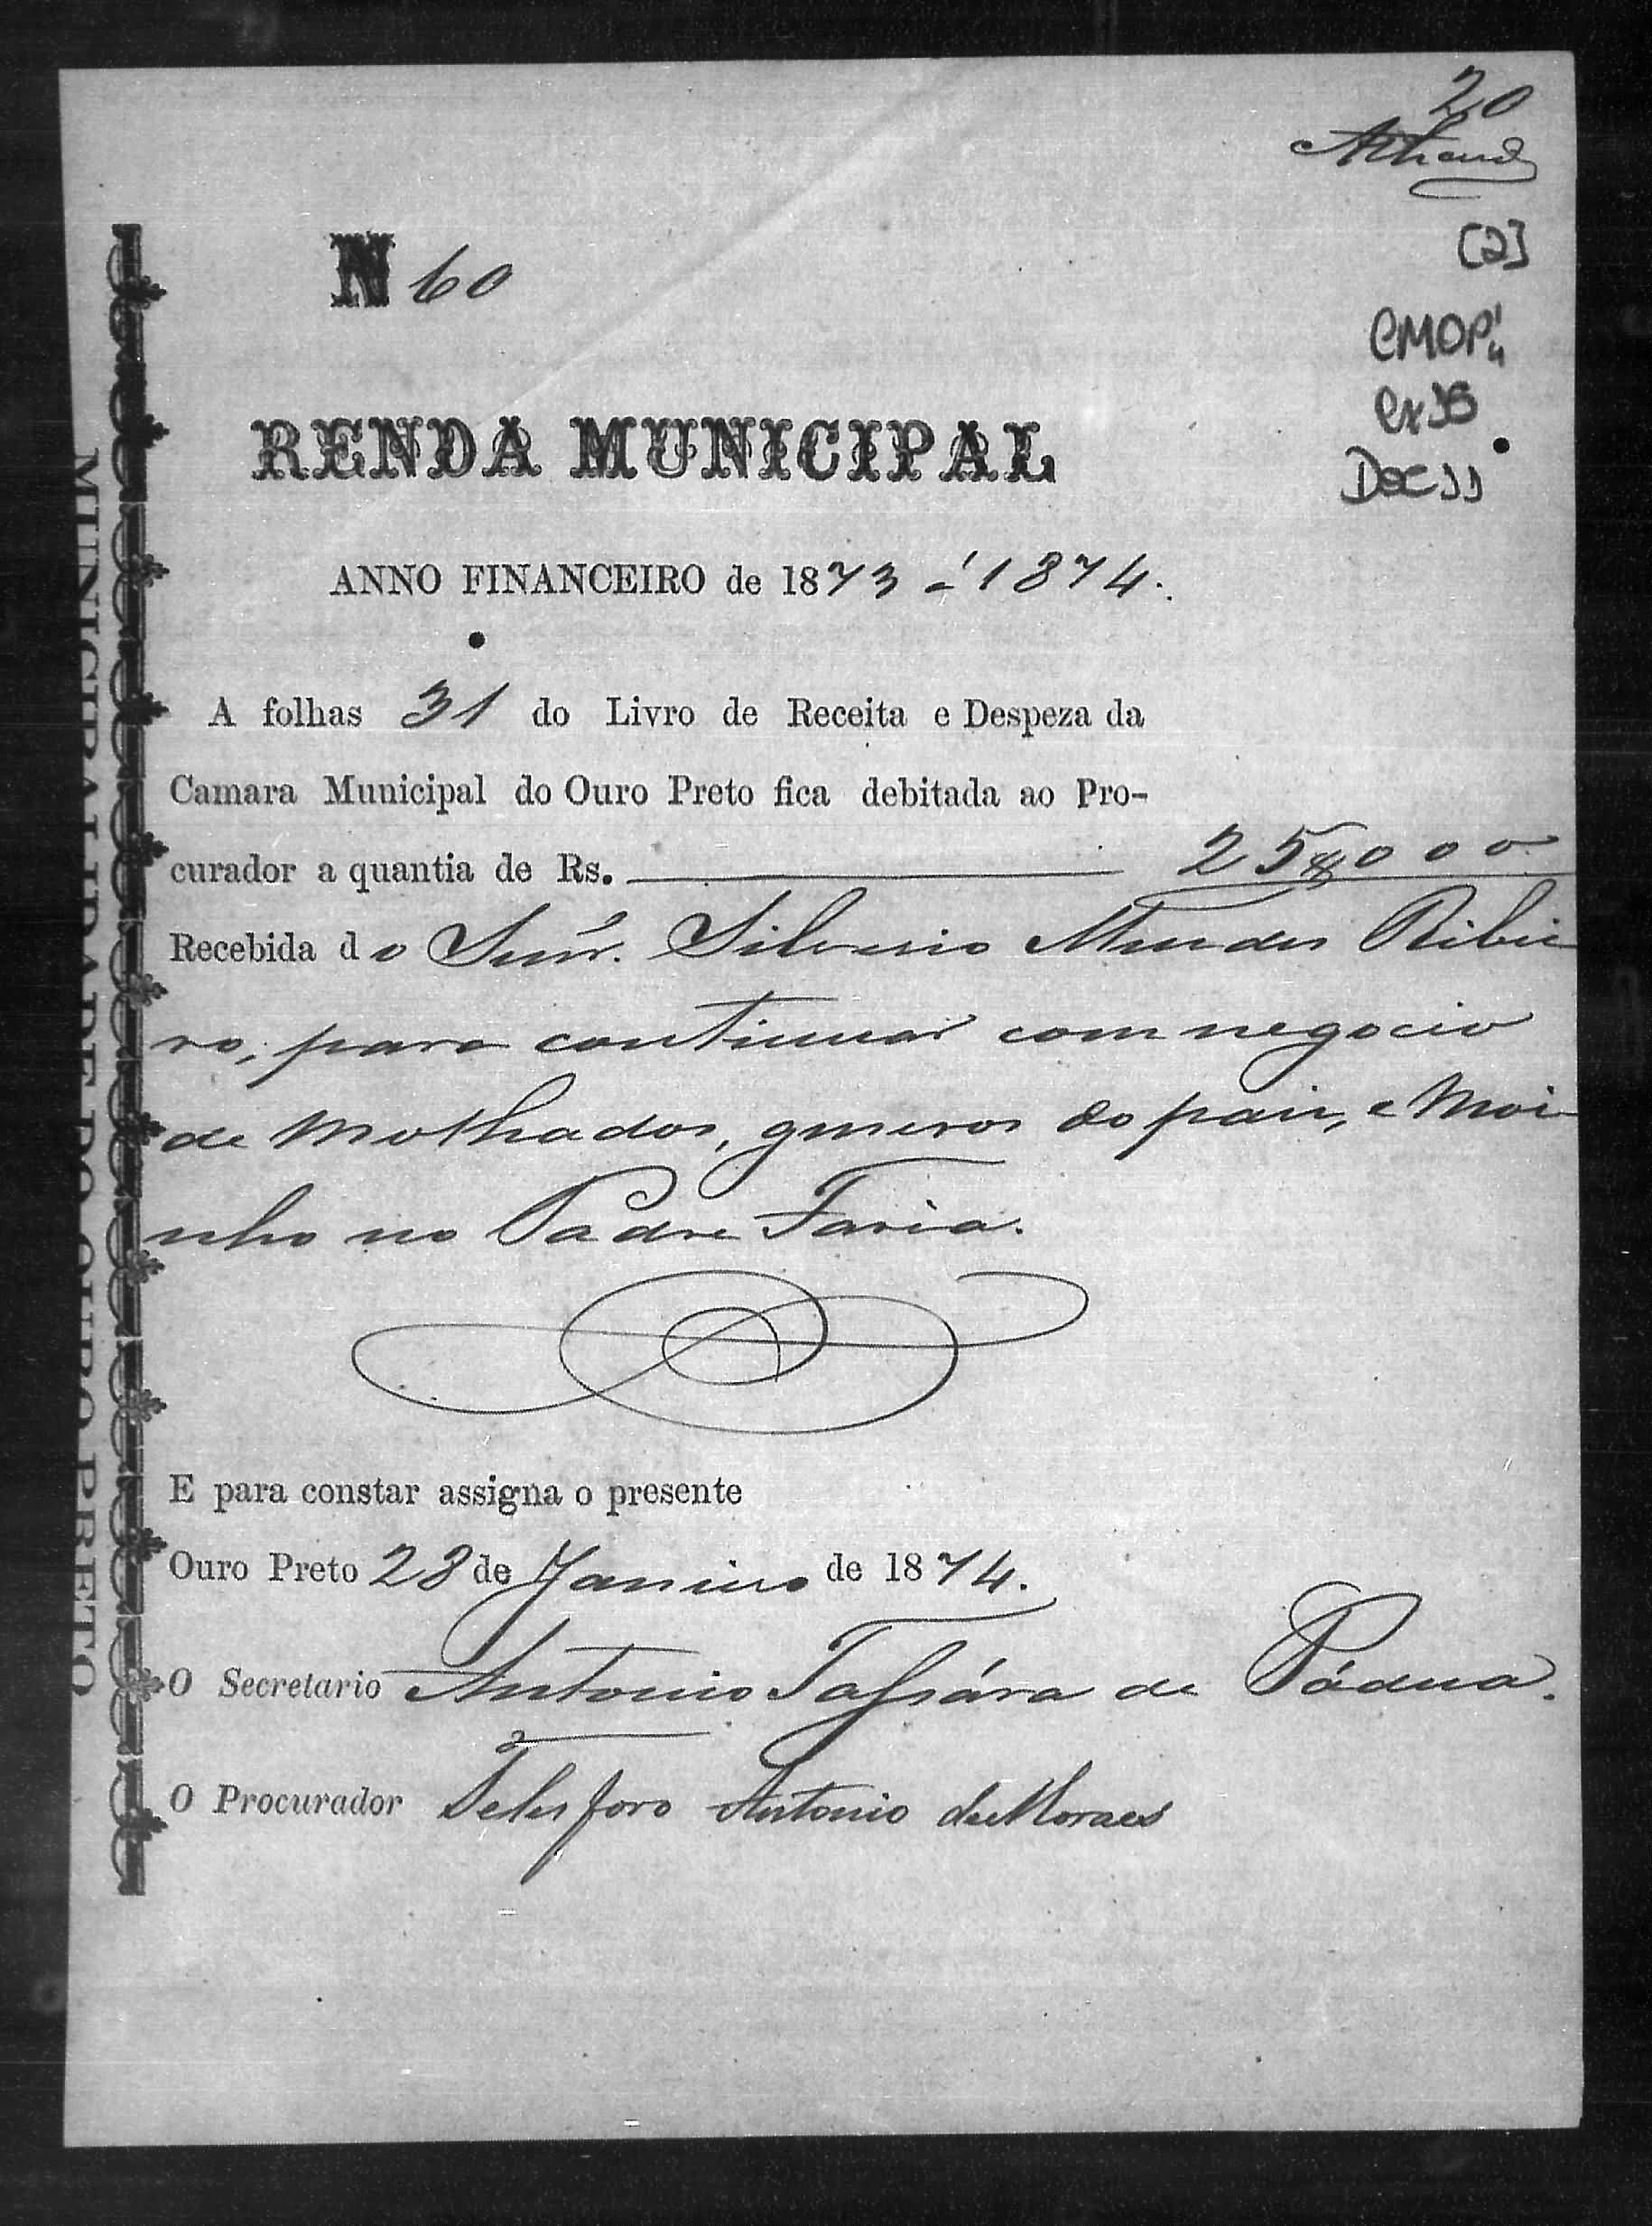 20
[2]
CMOP
cx 35
Doc 11
N 60
RENDA MUNICIPAL
ANNO FINANCEIRO de 1873 - 1874.
A folhas 31 do Livro de Receita e Despeza da
Camara Municipal do Ouro Preto fica debitada ao Pro-
curador a quantia de Rs. 25$000
Recebida do Snr. Silverio Mendes Ribei
ro, para continuar com negocio
de Molhados, generos do paiz, e Moi
nho no Padre Faria.
E para constar assigna o presente
Ouro Preto 28 de Janeiro de 1874.
O Secretario Antonio de Pádua.
O Procurador Telesforo Antonio de Moraes
MUNICIPALIDADE DO OURO PRETO